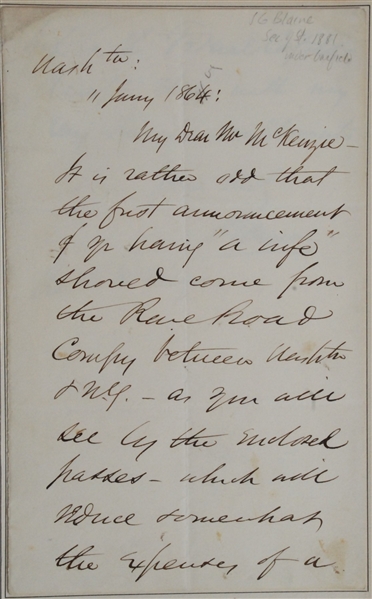 J G Blaine
Sec of St. 1881
under Garfield
Wash tn:
11 Jany 1864:
My Dear Mr McKenzie -
It is rather odd that
the first announcement
of yr having "a wife"
should come from
the Rail Road
Compy between Washtn
& N.Y. - as you will
see by the enclosed
passes - which will
reduce somewhat
the expenses of a